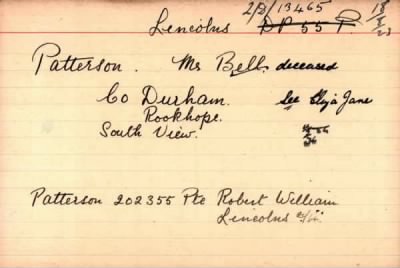 2/8/13465
Lincolns DP 55 P. 18/8/23
Patterson. Mrs Bell. deceased
Co Durham. See Eliza Jane
Rookhope.
South View.
Patterson 202355 Pte Robert William
Lincolns